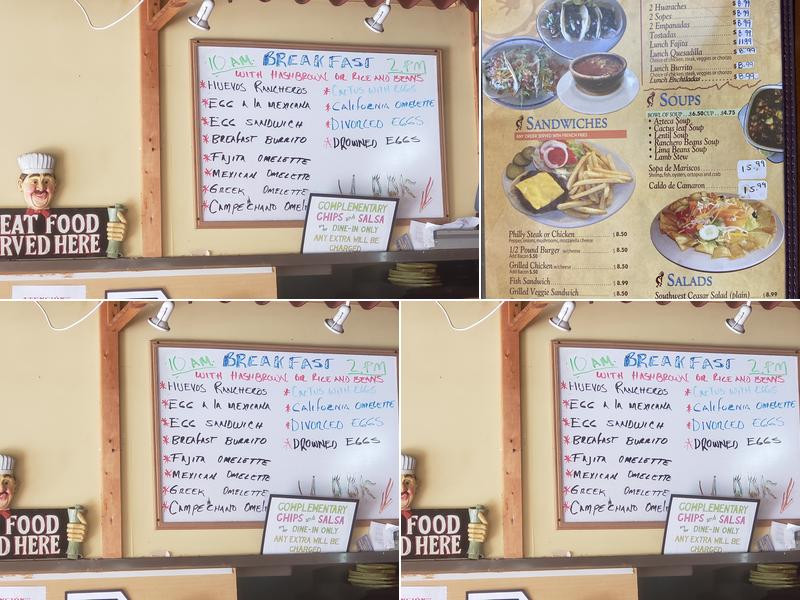 10 AM. BREAKFAST 2 PM
WITH HASHBROWN OR RICE AND BEANS
*HUEVOS RANCHEROS
*EGG A LA MEXICANA
*EGG SANDWICH
*BREAFAST BURRITO
*FAJITA OMELETTE
*MEXICAN OMELETTE
*GREEK OMELETTE
*CAMPECHANO OMELE
*CACTUS WITH EGGS
*CALIFORNIA OMELETTE
*DIVORCED EGGS
*DROWNED EGGS
COMPLEMENTARY
CHIPS and SALSA
DINE-IN ONLY
ANY EXTRA WILL BE
CHARGED
EAT FOOD
RVED HERE
2 Huaraches $8.99
2 Sopes $8.99
2 Empanadas $8.99
Tostadas $8.99
Lunch Fajita $11.99
Lunch Quesadilla $8.99
Choice of chicken, steak, veggies or chorizo
Lunch Burrito $8.99
Choice of chicken, steak, veggies or chorizo
Lunch Enchiladas $8.99
SOUPS
BOWL OF SOUP...$6.50 CUP...$4.75
• Azteca Soup
• Cactus leaf Soup
• Lentil Soup
• Ranchero Beans Soup
• Lima Beans Soup
• Lamb Stew
Sopa de Mariscos 15.99
Shrimp, fish, oysters, octopus and crab
Caldo de Camaron 15.99
SALADS
Southwest Ceasar Salad (plain) $8.99
SANDWICHES
ANY ORDER SERVED WITH FRENCH FRIES
Philly Steak or Chicken $8.50
Pepper, onions, mushrooms, mozzarella cheese
1/2 Pound Burger w/cheese $8.50
Add Bacon $.50
Grilled Chicken w/cheese $8.50
Add Bacon $.50
Fish Sandwich $8.99
Grilled Veggie Sandwich $8.50
10 AM. BREAKFAST 2 PM
WITH HASHBROWN OR RICE AND BEANS
*HUEVOS RANCHEROS
*EGG A LA MEXICANA
*EGG SANDWICH
*BREAFAST BURRITO
*FAJITA OMELETTE
*MEXICAN OMELETTE
*GREEK OMELETTE
*CAMPECHANO OMELE
*CACTUS WITH EGGS
*CALIFORNIA OMELETTE
*DIVORCED EGGS
*DROWNED EGGS
COMPLEMENTARY
CHIPS and SALSA
DINE-IN ONLY
ANY EXTRA WILL BE
CHARGED
FOOD
D HERE
10 AM. BREAKFAST 2 PM
WITH HASHBROWN OR RICE AND BEANS
*HUEVOS RANCHEROS
*EGG A LA MEXICANA
*EGG SANDWICH
*BREAFAST BURRITO
*FAJITA OMELETTE
*MEXICAN OMELETTE
*GREEK OMELETTE
*CAMPECHANO OMELE
*CACTUS WITH EGGS
*CALIFORNIA OMELETTE
*DIVORCED EGGS
*DROWNED EGGS
COMPLEMENTARY
CHIPS and SALSA
DINE-IN ONLY
ANY EXTRA WILL BE
CHARGED
FOOD
D HERE